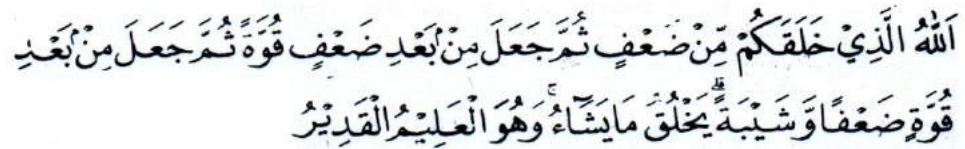 اَللّٰهُ الَّذِيْ خَلَقَكُمْ مِّنْ ضَعْفٍ ثُمَّ جَعَلَ مِنْۢ بَعْدِ ضَعْفٍ قُوَّةً ثُمَّ جَعَلَ مِنْۢ بَعْدِ
قُوَّةٍ ضَعْفًا وَّشَيْبَةً ۗيَخْلُقُ مَا يَشَاۤءُ ۚوَهُوَ الْعَلِيْمُ الْقَدِيْرُ